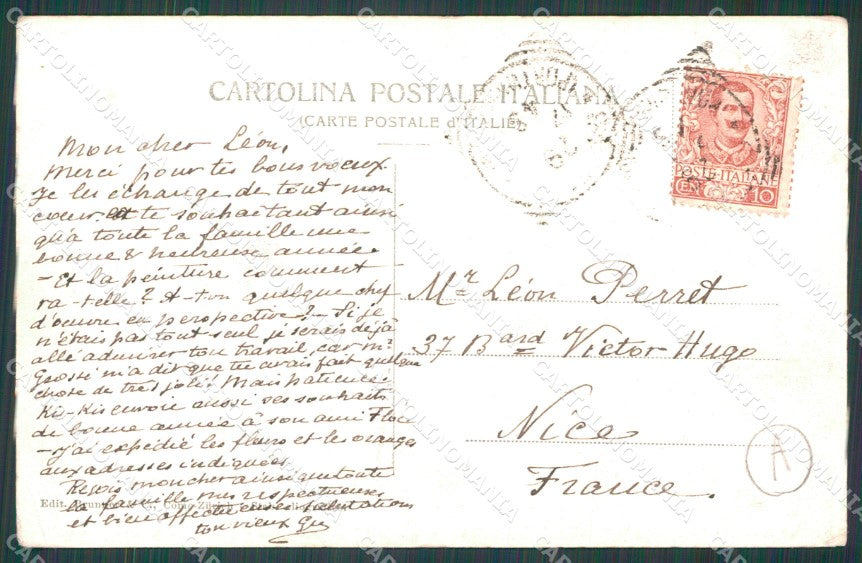 CARTOLINA POSTALE ITALIANA
(CARTE POSTALE d'ITALIE)
Mon cher Léon,
Merci pour tes bons voeux
Je les échange de tout mon
coeur et te souhaitant ainsi
qu'à toute la famille une
bonne & heureuse année.
- Et la peinture comment
va-t-elle? A-t-on quelque chef
d'oeuvre en perspective? - Si je
n'étais pas tout seul je serais déjà
allé admirer ton travail, car Mr
Grossi m'a dit que tu avais fait quelque
chose de très joli! Mais patience.
Kis-Kis envoie aussi ses souhaits
de bonne année à son ami Floc
- J'ai expédié les fleurs et les oranges
aux adresses indiquées
Reçois mon cher ainsi que toute
la famille mes respectueuses
et bien affectueuses salutations
ton vieux
Edit. Brunner & C., Como-Zürich
Mr. Léon Perret
37 Bard Victor Hugo
Nice
France.
POSTE ITALIANE
CENT. 10
A
CARTOLINOMANIA